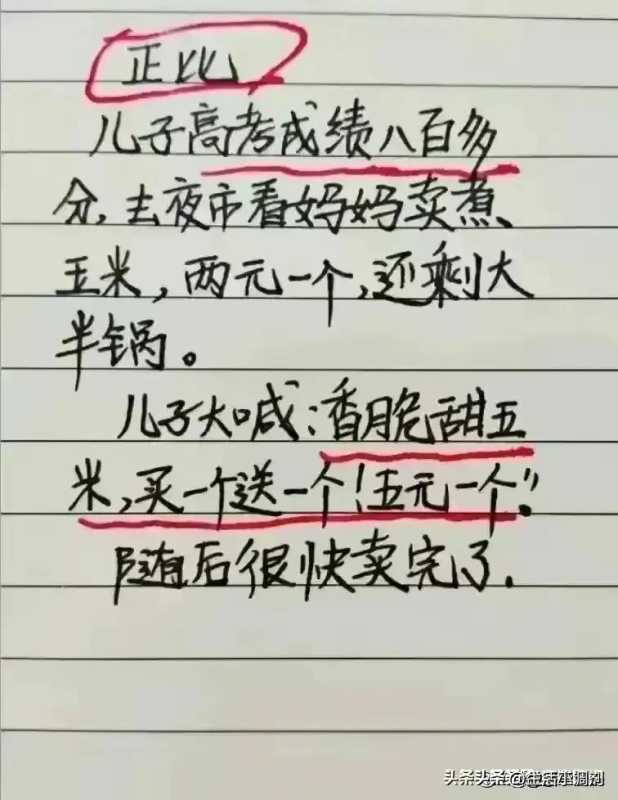 正比
儿子高考成绩八百多
分,去夜市看妈妈卖煮
玉米,两元一个,还剩大
半锅。
儿子大喊:香脆甜玉
米,买一个送一个!五元一个”!
随后很快卖完了.
头条